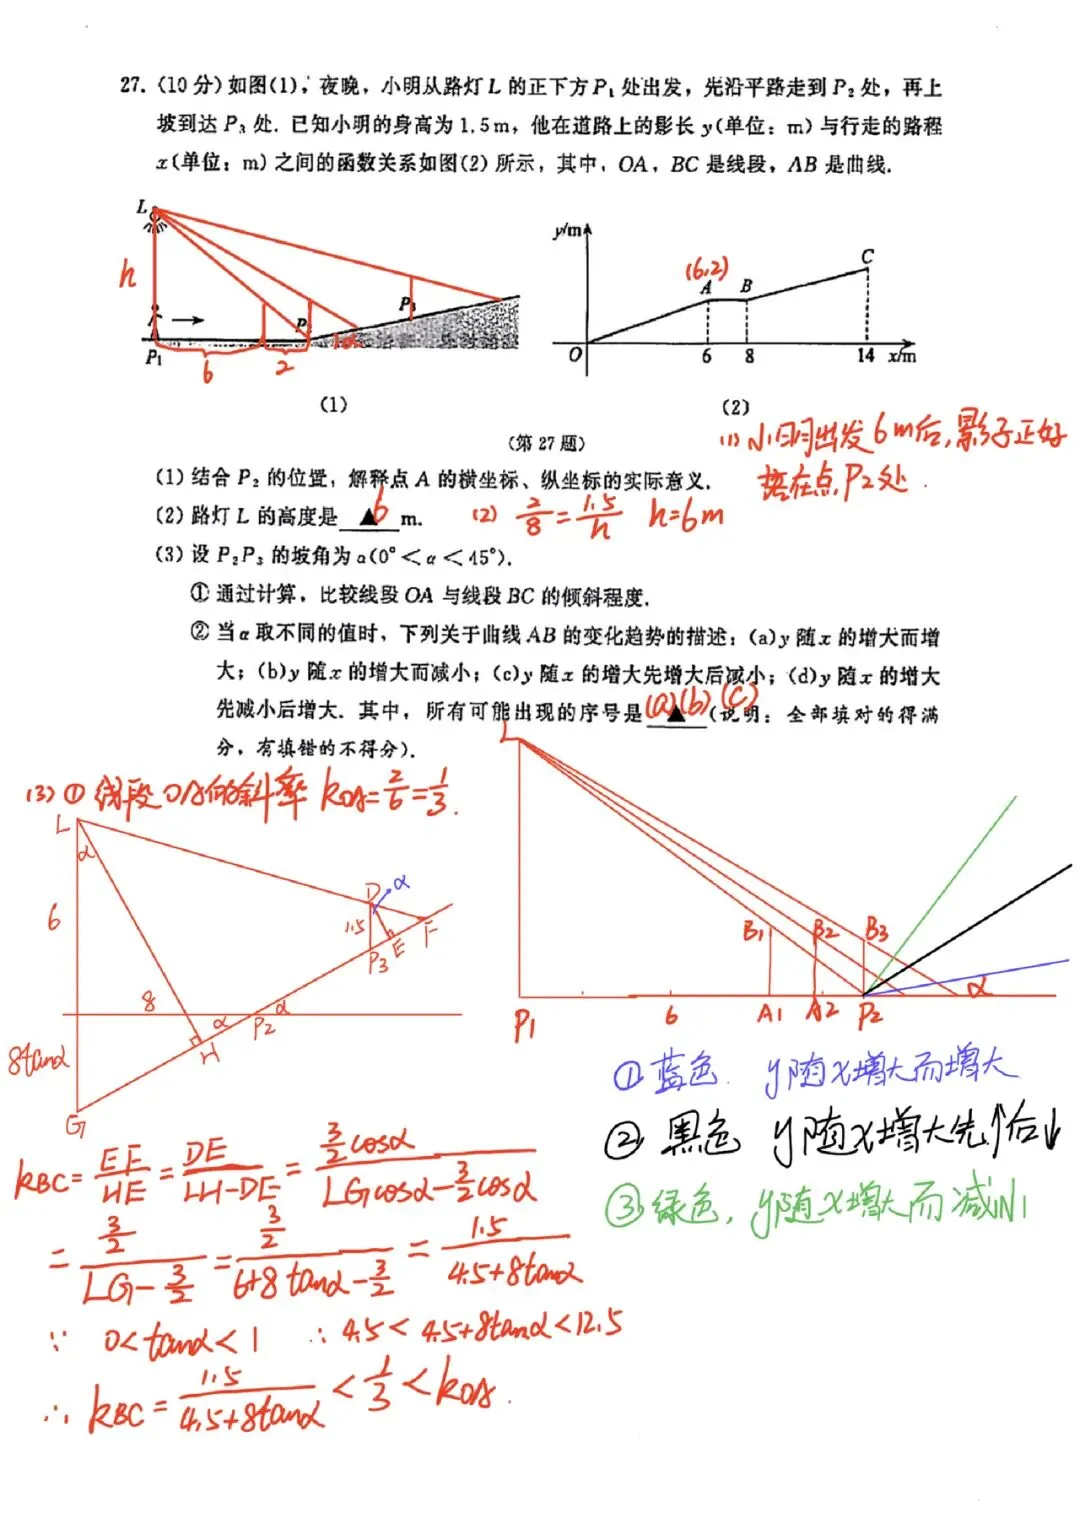 27. (10分)如图(1), 夜晚, 小明从路灯 L 的正下方 P₁ 处出发, 先沿平路走到 P₂ 处, 再上
坡到达 P₃ 处. 已知小明的身高为 1.5m, 他在道路上的影长 y(单位: m) 与行走的路程
x(单位: m) 之间的函数关系如图(2) 所示, 其中, OA, BC 是线段, AB 是曲线.
L
h
P₁
6
2
P
P₃
α
(1)
y/m
(6,2)
A
B
C
O
6
8
14
x/m
(2)
(第 27 题)
(1) 小明出发6m后,影子正好
落在点P2处.
(1) 结合 P₂ 的位置, 解释点 A 的横坐标、纵坐标的实际意义.
(2) 路灯 L 的高度是 ▲ 6 m.
(2) 2/8 = 1.5/h h=6m
(3) 设 P₂P₃ 的坡角为 α(0°<α<45°).
① 通过计算, 比较线段 OA 与线段 BC 的倾斜程度.
② 当 α 取不同的值时, 下列关于曲线 AB 的变化趋势的描述: (a)y 随 x 的增大而增
大; (b)y 随 x 的增大而减小; (c)y 随 x 的增大先增大后减小; (d)y 随 x 的增大
先减小后增大. 其中, 所有可能出现的序号是 ▲ (a)(b)(c) (说明: 全部填对的得满
分, 有填错的不得分).
(3) ① 线段OA的斜率 kOA=2/6=1/3.
L
α
6
8
8tanα
G
H
α
P2
α
D
α
1.5
P3
E
F
L
B1
B2
B3
P1
6
A1
A2
P2
α
① 蓝色. y随x增大而增大
② 黑色 y随x增大先↑后↓
③ 绿色, y随x增大而减小
kBC = EF/HE = DE/(LH-DE) = (3/2 cosα)/(LGcosα - 3/2 cosα)
= (3/2)/(LG - 3/2) = (3/2)/(6+8tanα - 3/2) = 1.5/(4.5+8tanα)
∵ 0<tanα<1 ∴ 4.5<4.5+8tanα<12.5
∴ kBC = 1.5/(4.5+8tanα) < 1/3 < kOA.